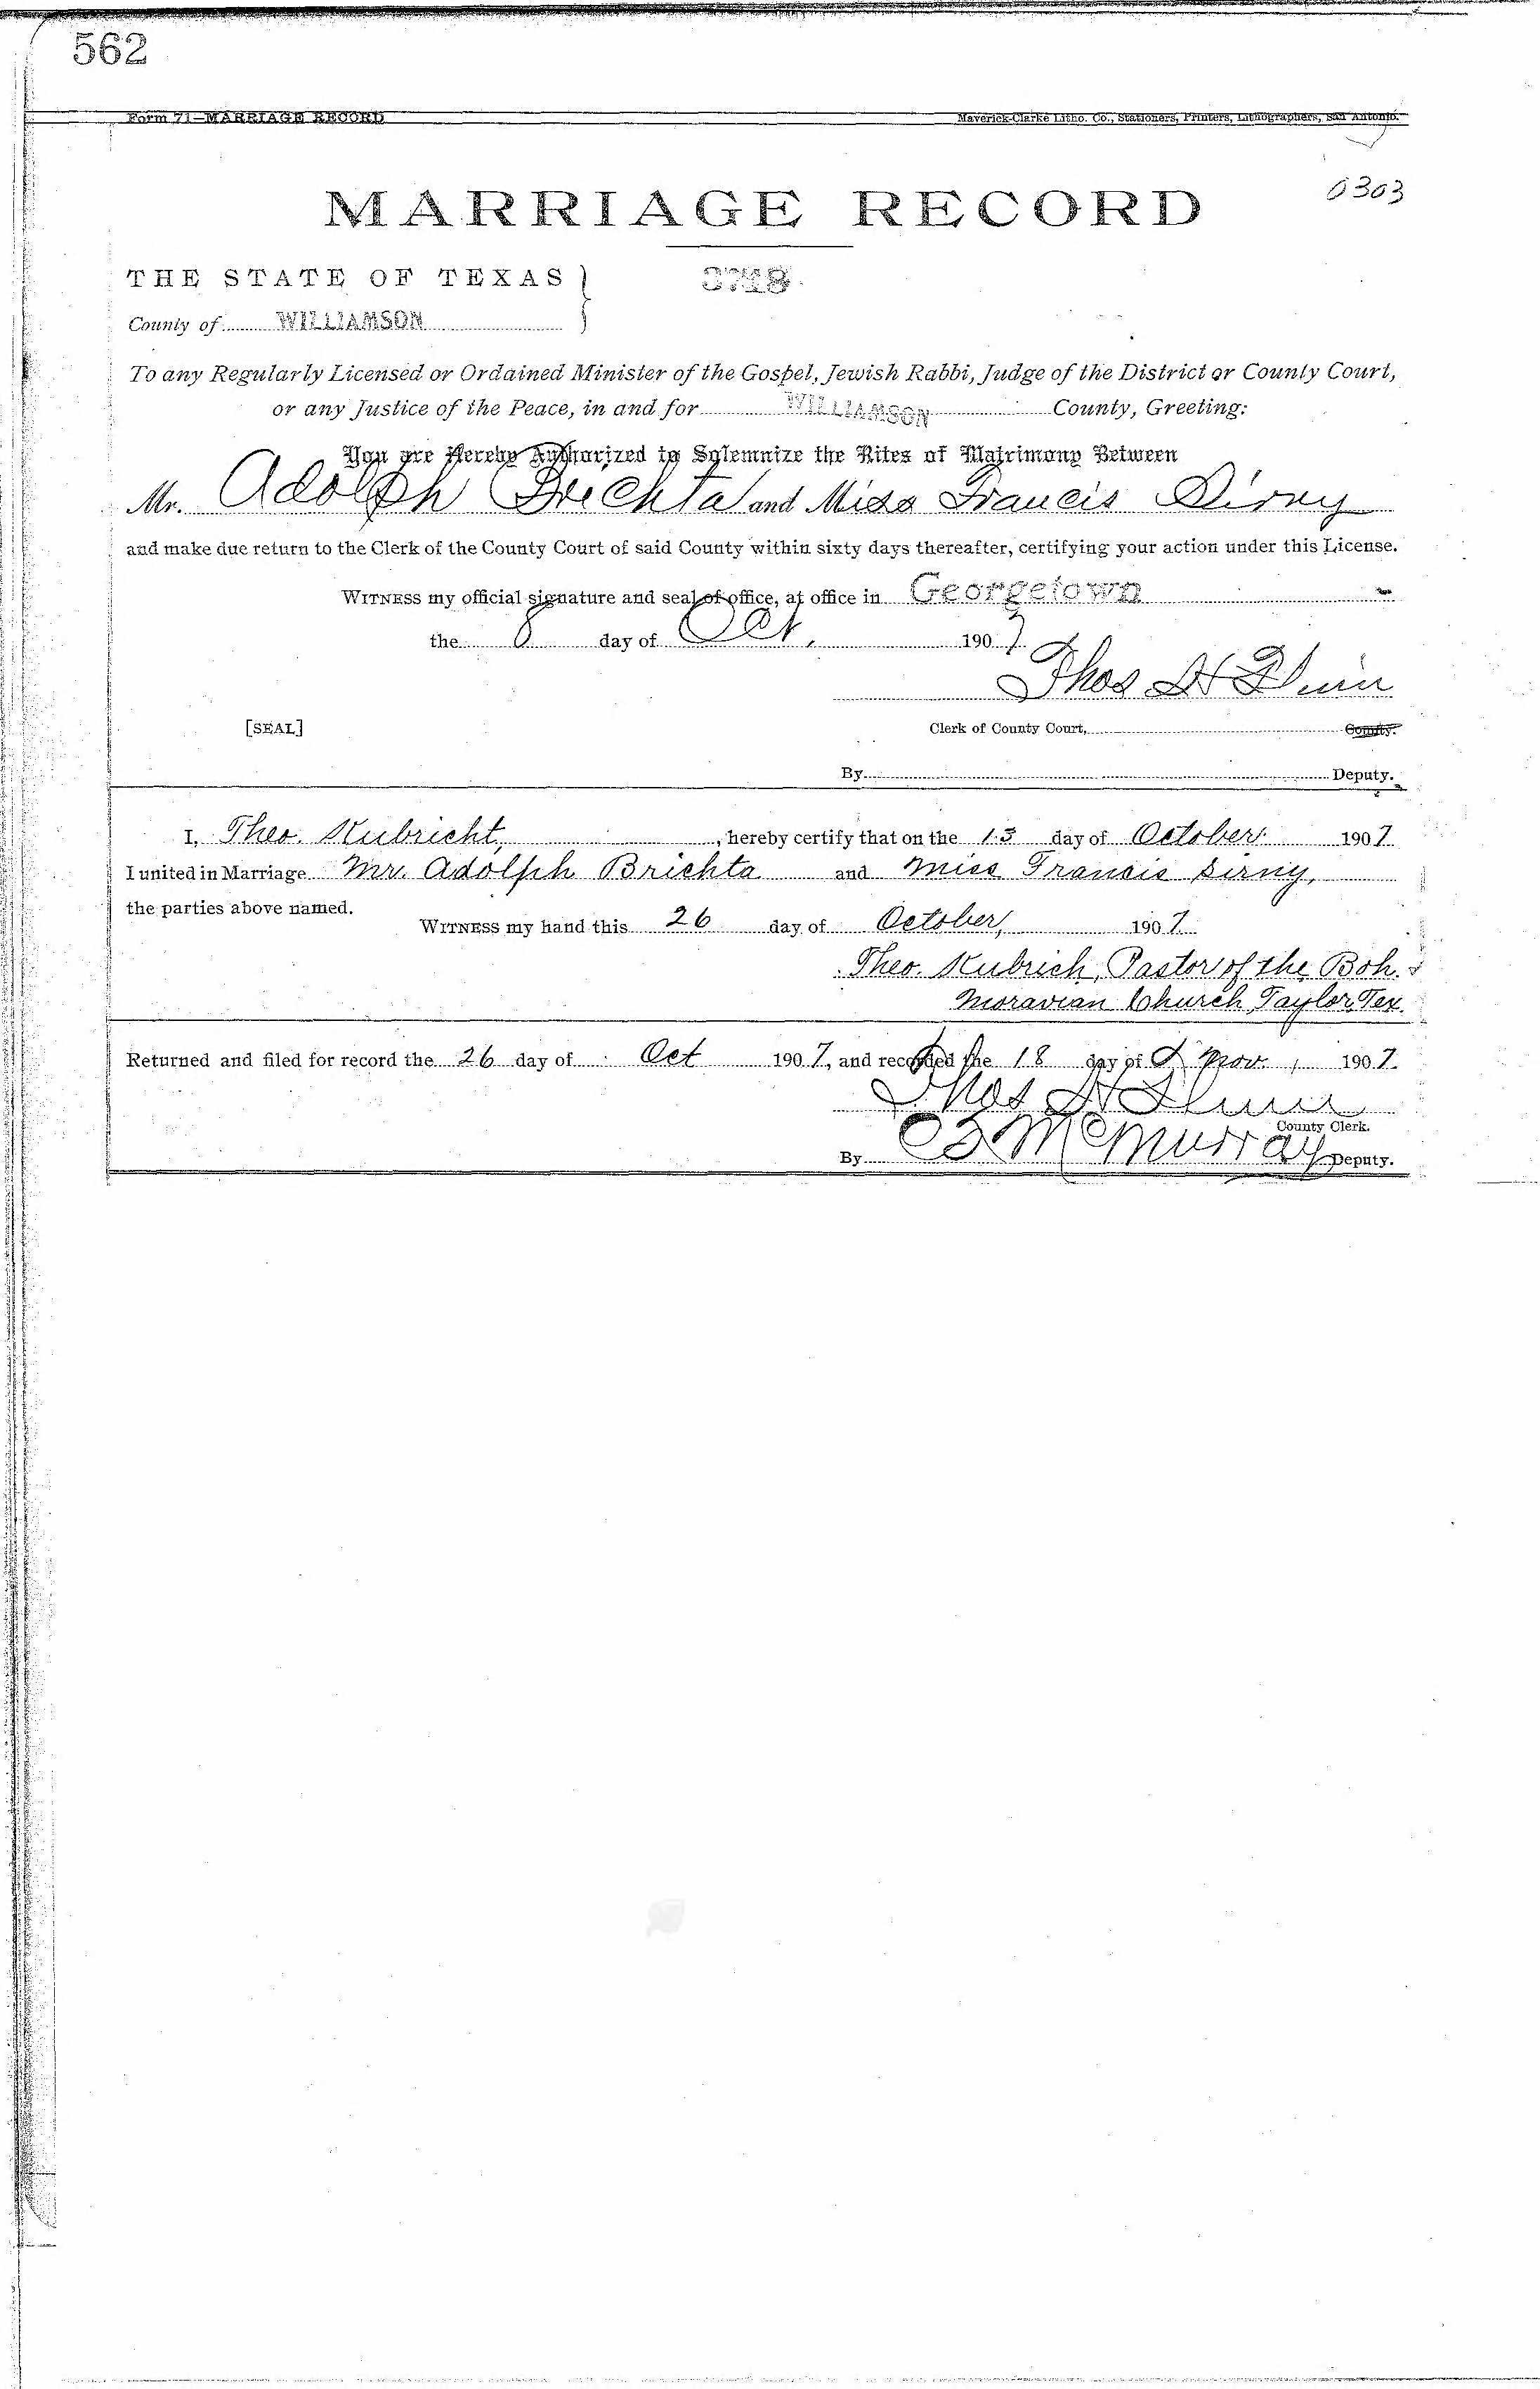 562
Form 71—MARRIAGE RECORD
Maverick-Clarke Litho. Co., Stationers, Printers, Lithographers, San Antonio.
MARRIAGE RECORD
0303
THE STATE OF TEXAS
County of WILLIAMSON
To any Regularly Licensed or Ordained Minister of the Gospel, Jewish Rabbi, Judge of the District or County Court,
or any Justice of the Peace, in and for WILLIAMSON County, Greeting:
You are Hereby Authorized to Solemnize the Rites of Matrimony Between
Mr. Adolph Brichta and Miss Francis Sirny
and make due return to the Clerk of the County Court of said County within sixty days thereafter, certifying your action under this License.
WITNESS my official signature and seal of office, at office in Georgetown
the 8 day of Oct. 1907
Thos H
[SEAL]
Clerk of County Court, County.
By Deputy.
I, Theo. Kubricht, , hereby certify that on the 13 day of October 1907
I united in Marriage Mr. Adolph Brichta and Miss Francis Sirny,
the parties above named.
WITNESS my hand this 26 day of October, 1907
Theo. Kubrich, Pastor of the Boh.
Moravian Church Taylor, Tex.
Returned and filed for record the 26 day of Oct 1907, and recorded the 18 day of Nov, 1907
Thos H
County Clerk.
By McMurray Deputy.